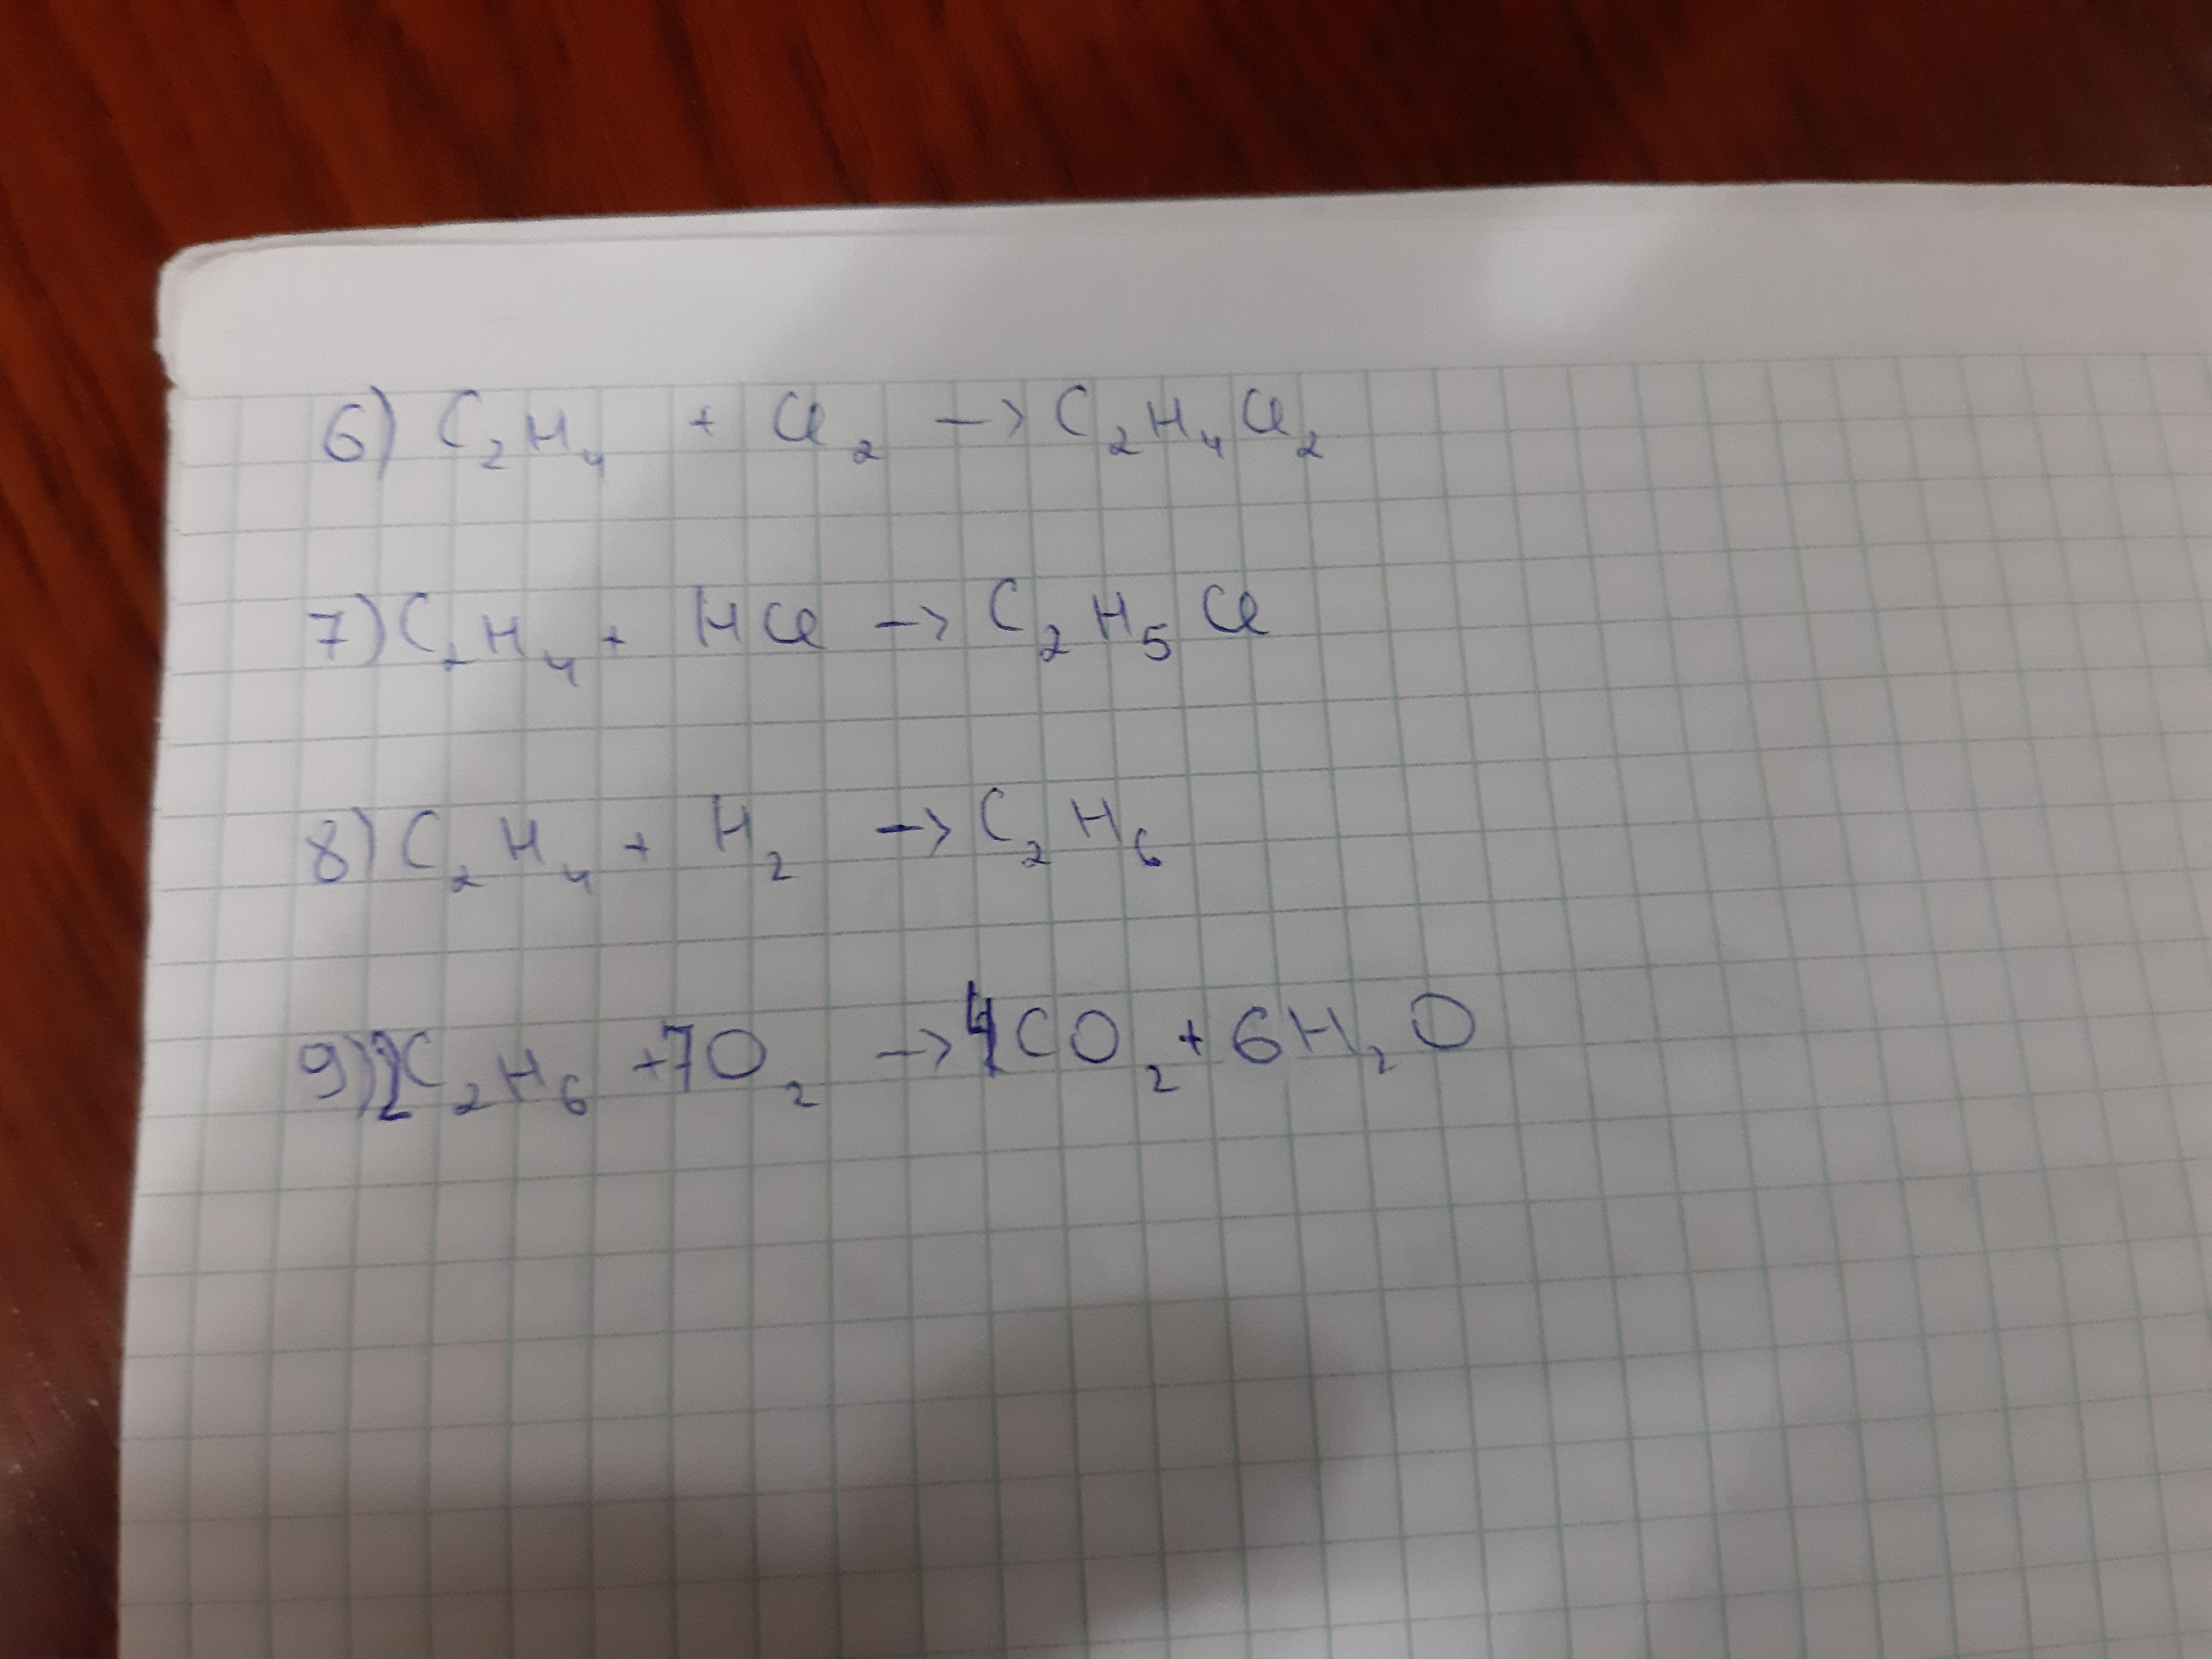 6) C₂H₄ + Cl₂ → C₂H₄Cl₂
7) C₂H₄ + HCl → C₂H₅Cl
8) C₂H₄ + H₂ → C₂H₆
9) 2C₂H₆ + 7O₂ → 4CO₂ + 6H₂O